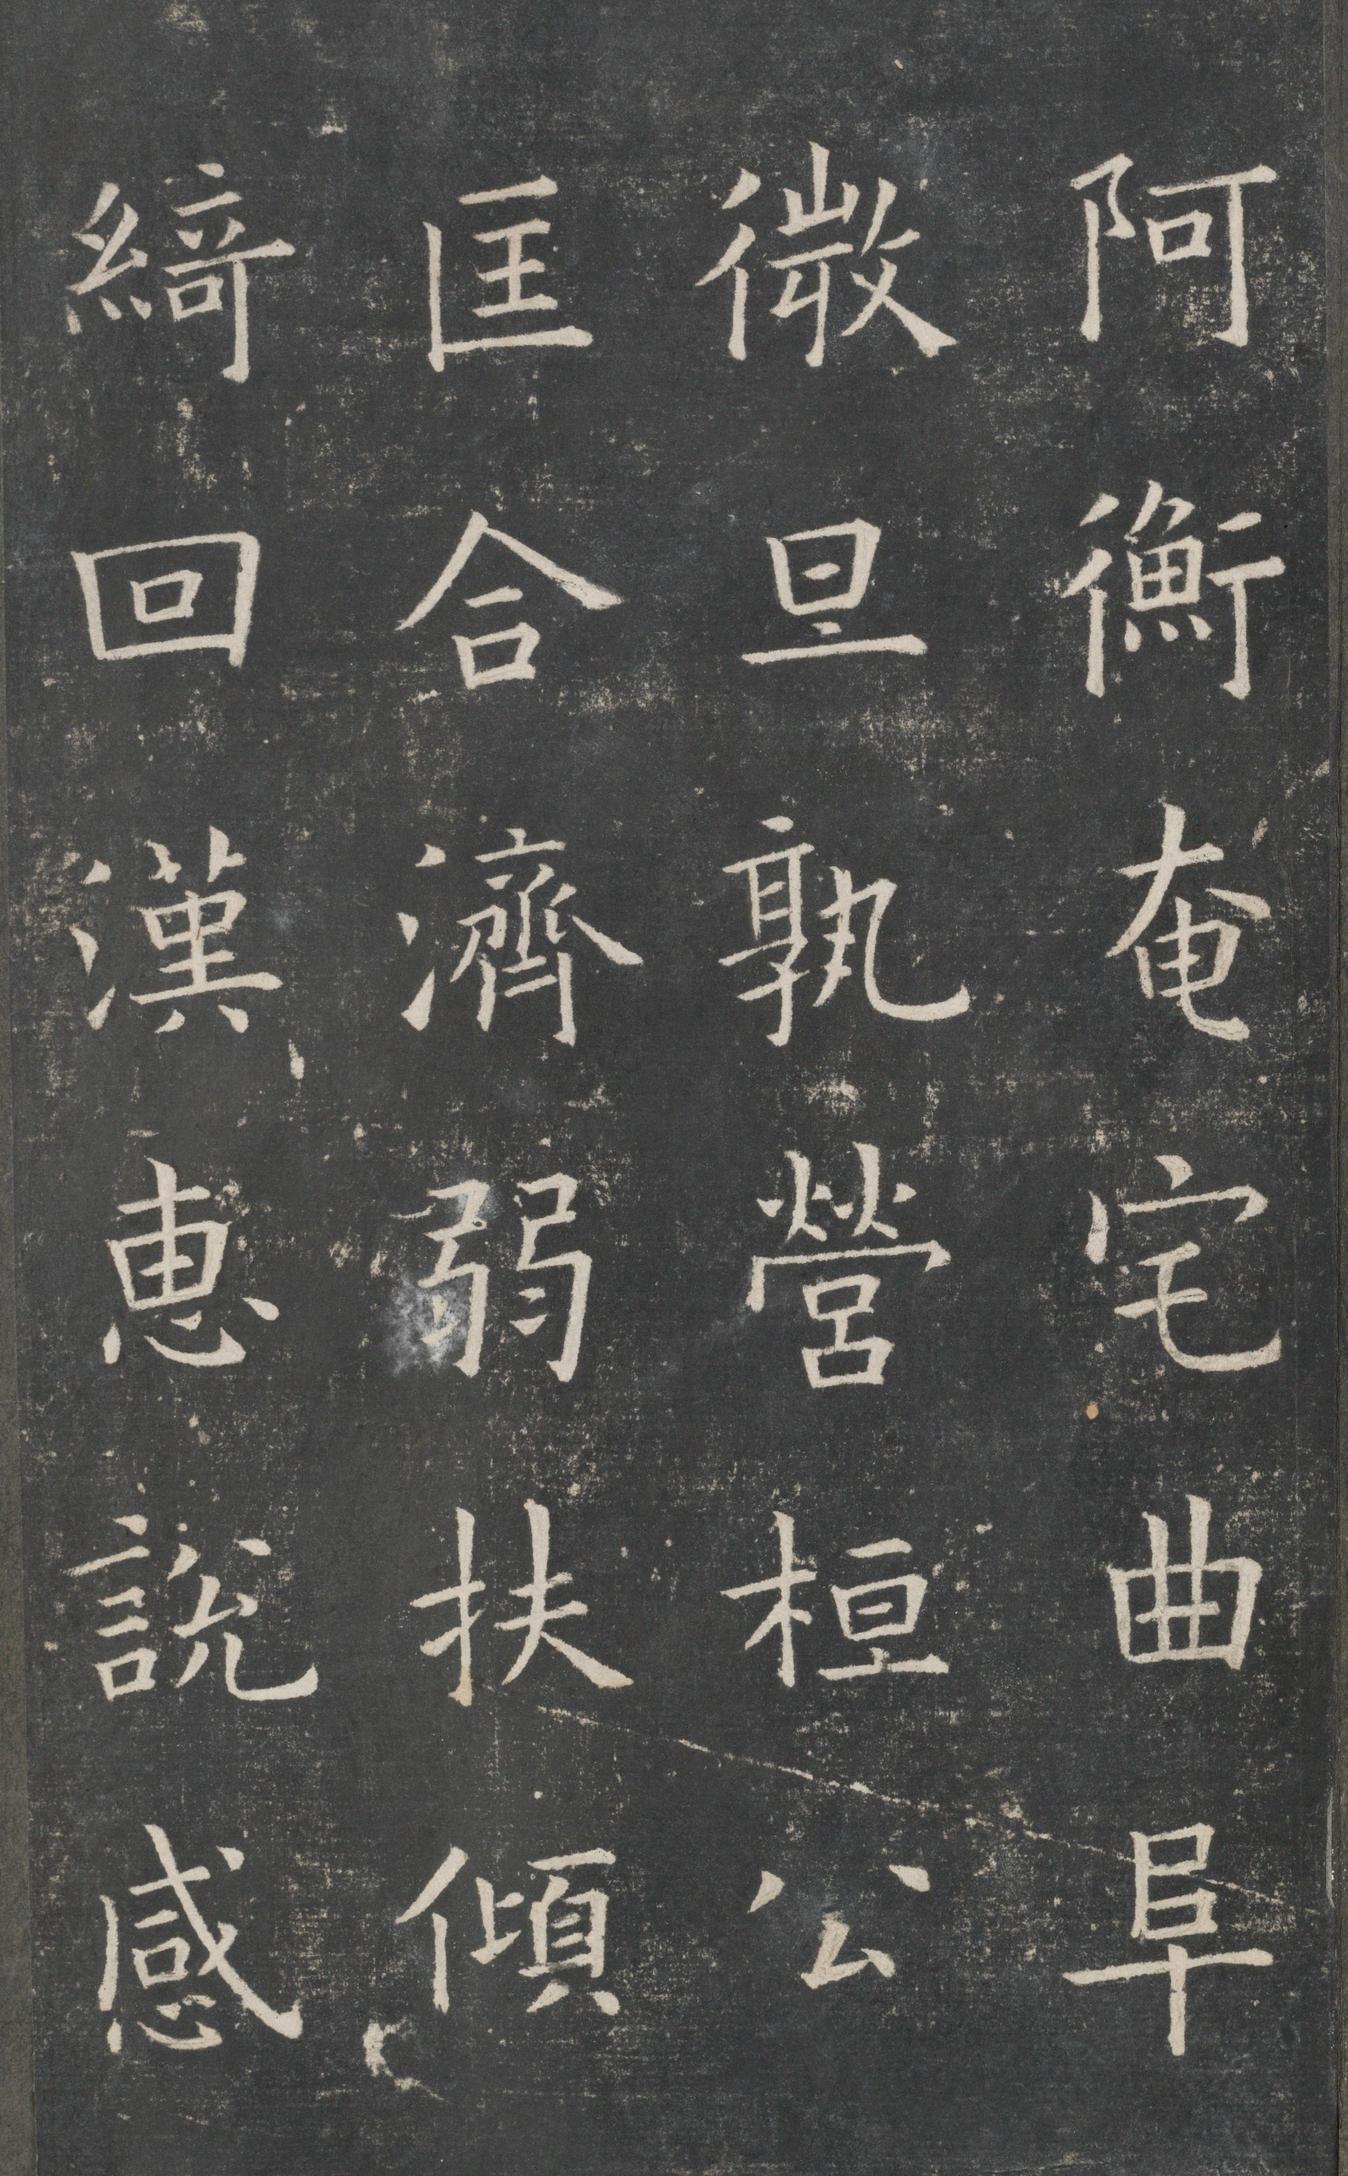 阿衡奄宅曲阜
微旦孰營桓公
匡合濟弱扶傾
綺回漢惠說感